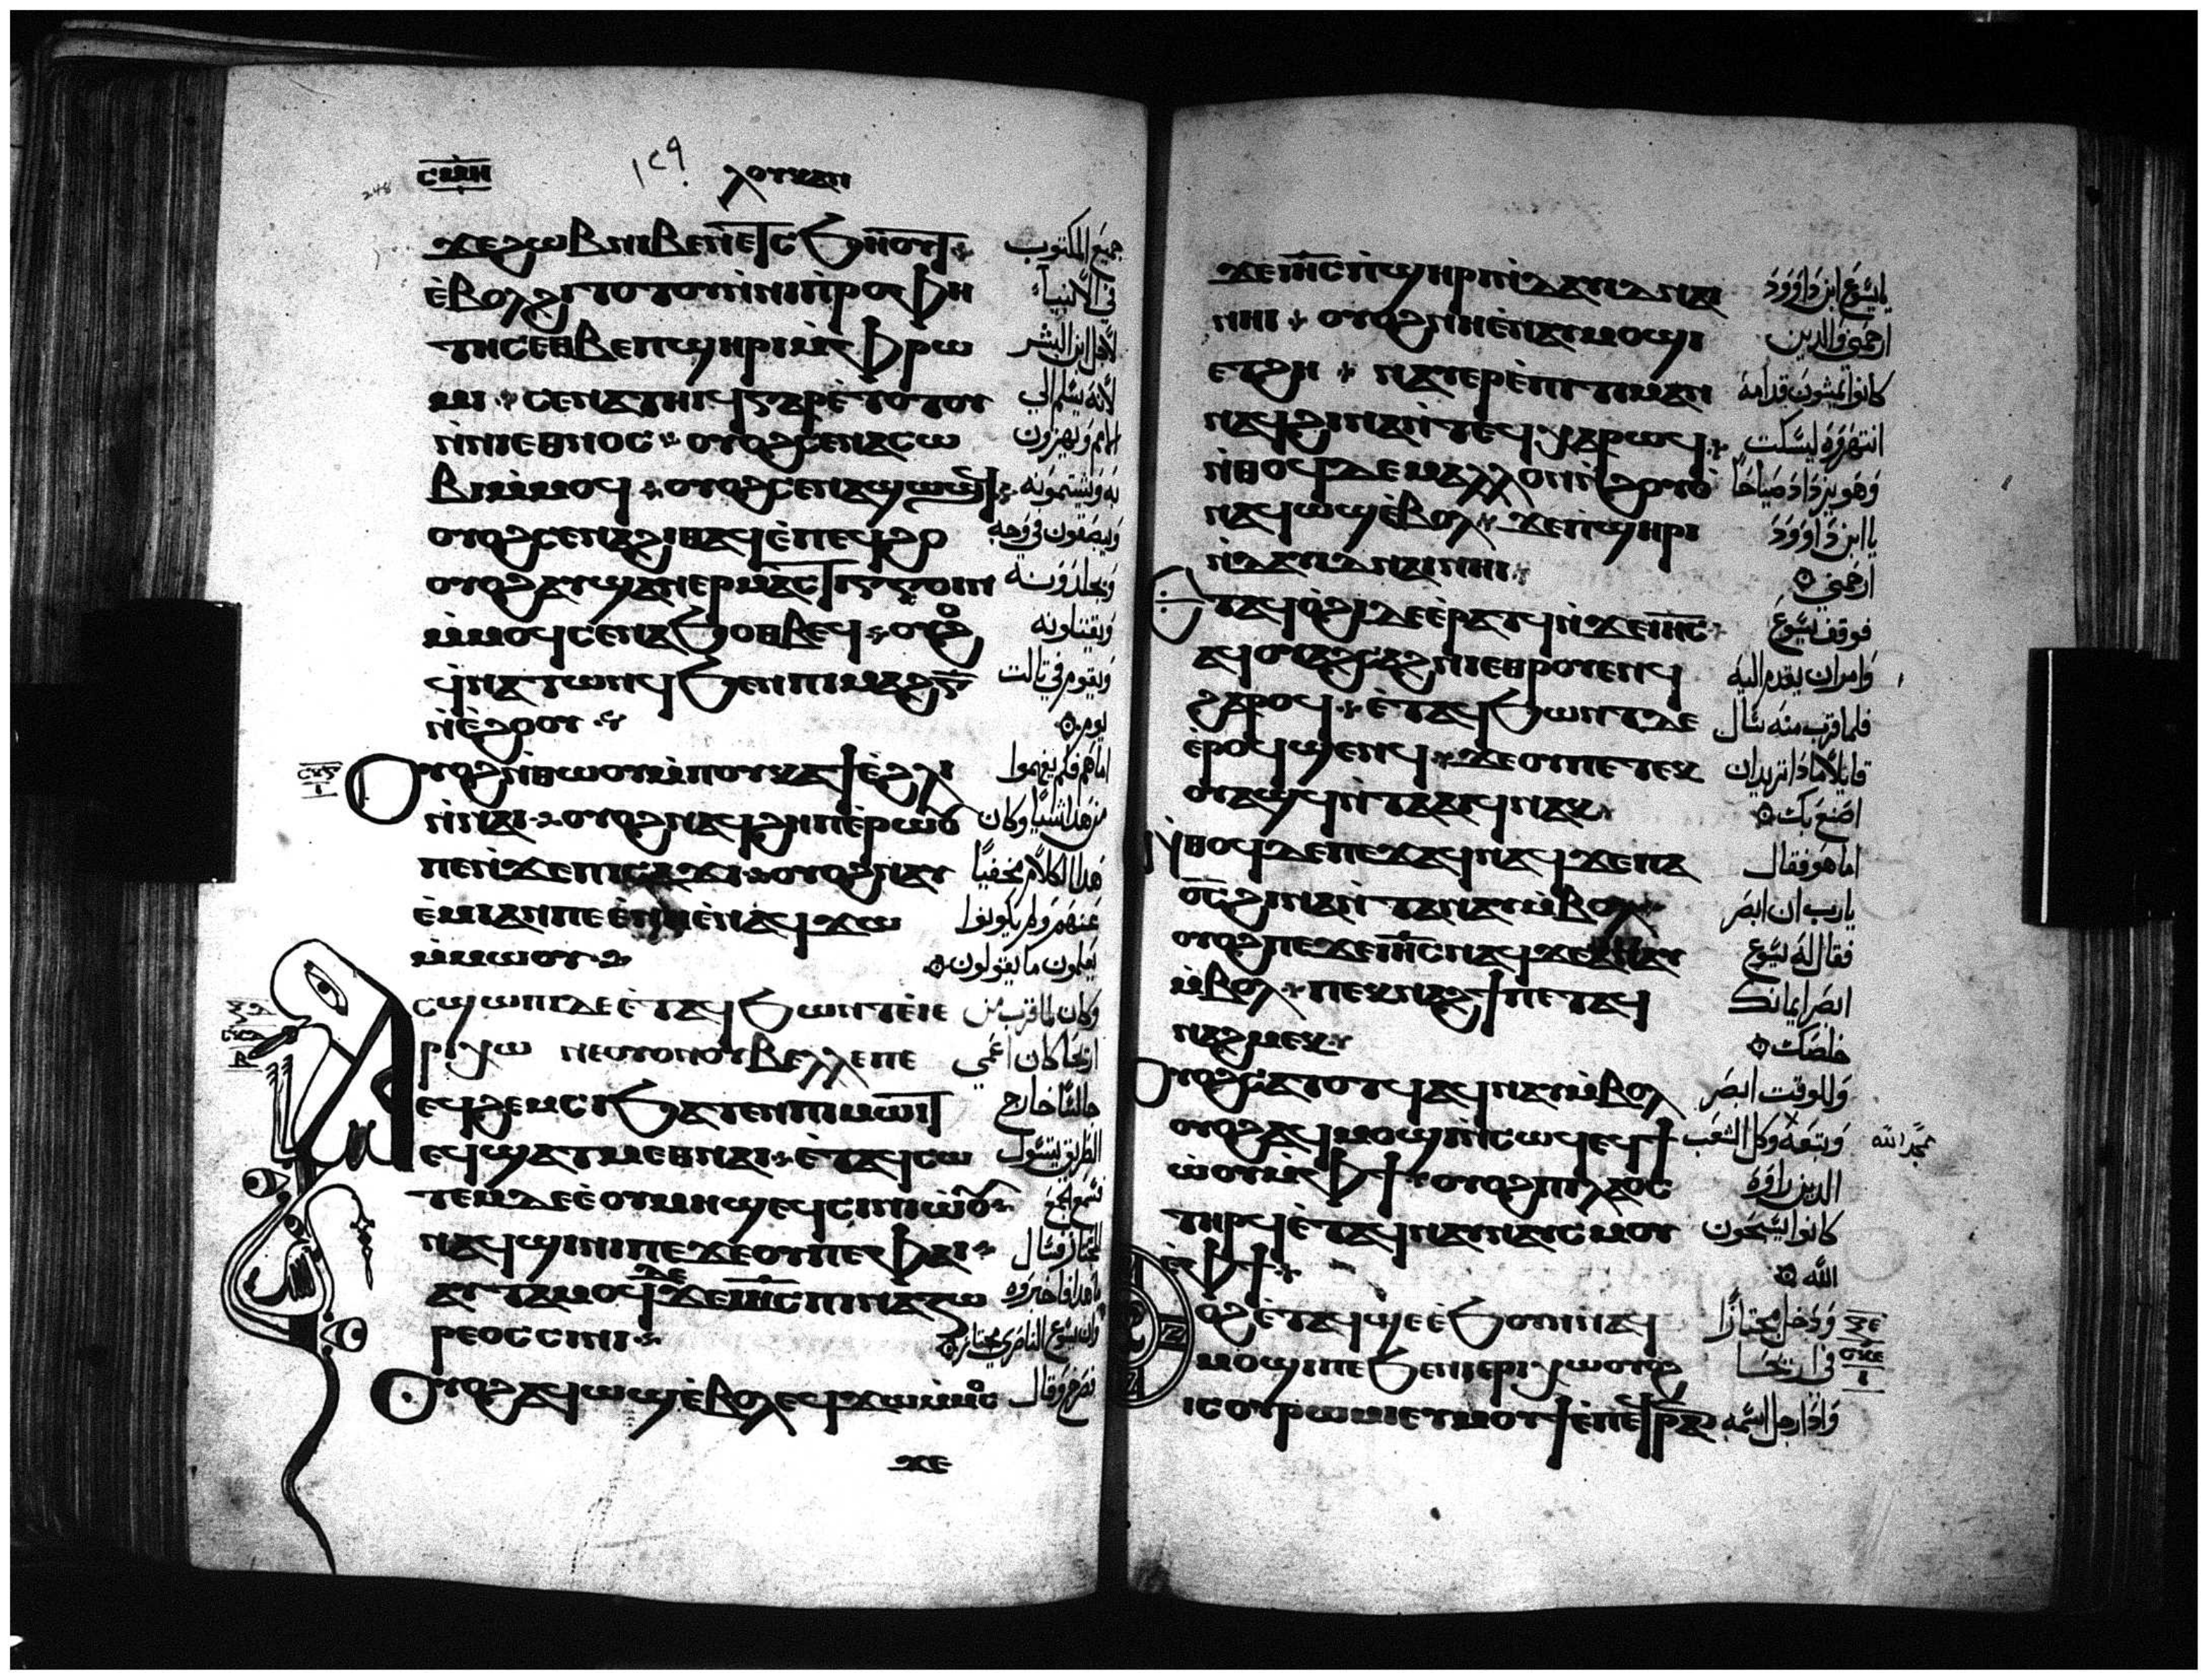 ⲥⲙⲏ ١٢٩ ⲗⲟⲩⲕⲁⲛ
248
ϫⲉϩⲱⲃⲛⲓⲃⲉⲛⲉⲧⲥϧⲏⲟⲩⲧ جميع المكتوب
ⲉⲃⲟⲗϩⲓⲧⲟⲧⲟⲩⲛⲛⲓⲡⲣⲟⲫⲏ في الانبياء
ⲧⲏⲥⲉⲑⲃⲉⲡϣⲏⲣⲓⲙⲫⲣⲱ لاجل ابن البشر
ⲙⲓ ⲥⲉⲛⲁⲧⲏⲓϥⲅⲁⲣⲉⲧⲟⲧⲟⲩ لانه يسلم الي
ⲛⲛⲓⲉⲑⲛⲟⲥ ⲟⲩⲟϩⲥⲉⲛⲁⲥⲱ الامم ويهزون
ⲃⲓⲙⲙⲟϥ ⲟⲩⲟϩⲥⲉⲛⲁϣⲟϣϥ به ويشتمونه
ⲟⲩⲟϩⲥⲉⲛⲁϩⲓⲑⲁϥⲉⲡⲉϥϩⲟ ويبصقون في وجهه
ⲟⲩⲟϩⲁⲩϣⲁⲛⲉⲣⲙⲁⲥⲧⲓⲅⲅⲟⲓⲛ ويجلدونه
ⲙⲙⲟϥⲥⲉⲛⲁϧⲟⲑⲃⲉϥ ⲟⲩⲟϩ ويقتلونه
ϥⲛⲁⲧⲱⲛϥϧⲉⲛⲡⲓⲙⲁϩⲅ ويقوم في تالت
ⲛⲉϩⲟⲟⲩ يوم
ⲟⲩⲟϩⲛⲑⲱⲟⲩⲙⲡⲟⲩⲕⲁϯⲉϩⲗⲓ اما هم فلم يفهموا
ⲛⲛⲁⲓ ⲟⲩⲟϩⲛⲁϥϩⲏⲡⲉⲣⲱⲟⲩ من هذا شيا وكان
ⲡⲉⲛϫⲉⲡⲓⲥⲁϫⲓ ⲟⲩⲟϩⲛⲁⲩ هذا الكلام مخفيًا
ⲉⲙⲓⲁⲛⲡⲉⲉⲛⲏⲉⲛⲁϥϫⲱ عنهم ولم يكونوا
ⲙⲙⲱⲟⲩ يعلمون ما يقولون
ⲁⲥϣⲱⲡⲓⲇⲉⲉⲧⲁϥϧⲱⲛⲧⲉⲓⲉ وكان لما قرب من
ⲣⲓⲭⲱ ⲛⲉⲟⲩⲟⲛⲟⲩⲃⲉⲗⲗⲉⲡⲉ اريحا كان اعمي
ⲉϥϩⲉⲙⲥⲓϧⲁⲧⲉⲛⲡⲓⲙⲱⲓⲧ جالسًا خارج
ⲉϥϣⲁⲧⲙⲉⲑⲛⲁⲓ ⲉⲧⲁϥⲥⲱ الطريق ليتسول
ⲧⲉⲙⲇⲉⲉⲟⲩⲙⲏϣⲉϥⲥⲓⲛⲓⲱⲟⲩ فسمع الجمع
ⲛⲁϥϣⲓⲛⲓⲡⲉϫⲉⲟⲩⲡⲉⲫⲁⲓ المجتاز فسال
ⲁⲩⲧⲁⲙⲟϥⲇⲉϫⲉⲓⲏⲥⲡⲓⲛⲁⲍⲱ ما هذا فاخبروه
ⲣⲉⲟⲥⲥⲓⲛⲓ وان يسوع الناصري مجتاز
ⲟⲩⲟϩⲁϥⲱϣⲉⲃⲟⲗⲉϥϫⲱⲙⲙⲟⲥ فصرخ وقال
ϫⲉ
ϫⲉⲓⲏⲥⲡϣⲏⲣⲓⲛⲇⲁⲩⲓⲇⲛⲁⲓ يا يسوع ابن داوود
ⲛⲏⲓ ⲟⲩⲟϩⲛⲏⲉⲛⲁⲩⲙⲟϣⲓ ارحمني والدين
ⲉⲧϩⲏ ⲛⲁⲩⲉⲣⲉⲡⲓⲧⲓⲙⲁⲛ كانوا يمشون قدامه
ⲛⲁϥϩⲓⲛⲁⲛⲧⲉϥⲭⲁⲣⲱϥ انتهروه ليسكت
ⲛⲑⲟϥⲇⲉⲙⲁⲗⲗⲟⲛⲛϩⲟⲩⲟ وهو يزداد صياحًا
ⲛⲁϥⲱϣⲉⲃⲟⲗ ϫⲉⲡϣⲏⲣⲓ يا ابن داوود
ⲛⲇⲁⲩⲓⲇⲛⲁⲓⲛⲏⲓ ارحمني
ⲉⲧⲁϥⲟϩⲓⲇⲉⲉⲣⲁⲧϥⲛϫⲉⲓⲏⲥ فوقف يسوع
ⲁϥⲟⲩⲁϩⲥⲁϩⲛⲓⲉⲑⲣⲟⲩⲉⲛϥ وامر ان يقدم اليه
ϩⲁⲣⲟϥ ⲉⲧⲁϥϧⲱⲛⲧⲇⲉ فلما قرب منه سال
ⲉⲣⲟϥϣⲉⲛϥ ϫⲉⲟⲩⲡⲉⲧⲉⲕ قايلا ماذا تريد ان
ⲟⲩⲁϣϥⲛⲧⲁⲁⲓϥⲛⲁⲕ اصنع بك
ⲛⲑⲟϥⲇⲉⲡⲉϫⲁϥⲛⲁϥϫⲉⲡⲁ اما هو فقال
ⲟⲥϩⲓⲛⲁⲛⲧⲁⲛⲁⲩⲙⲃⲟⲗ يارب ان ابصر
ⲟⲩⲟϩⲡⲉϫⲉⲓⲏⲥⲛⲁϥϫⲉⲁⲛⲁⲩ فقال له يسوع
ⲙⲃⲟⲗ ⲡⲉⲕⲛⲁϩϯⲡⲉⲧⲁϥ ابصر ايمانك
ⲛⲁϩⲙⲉⲕ خلصك
ⲟⲩⲟϩⲥⲁⲧⲟⲧϥⲁϥⲛⲁⲩⲙⲃⲟⲗ وللوقت ابصر
ⲟⲩⲟϩⲁϥⲙⲟϣⲓⲛⲥⲱϥⲉϥϯ وتبعه وكل الشعب يمجد الله
ⲱⲟⲩⲙⲫϯ ⲟⲩⲟϩⲡⲓⲗⲁⲟⲥ الدين راوه
ⲧⲏⲣϥⲉⲧⲁϥⲛⲁⲩⲛⲁⲩⲥⲙⲟⲩ كانوا يسبحون
ⲉⲫϯ الله
ⲟⲩⲟϩⲉⲧⲁϥϣⲉⲉϧⲟⲩⲛⲛⲁϥ ودخل مجتازًا
ⲙⲟϣⲓⲡⲉϧⲉⲛⲓⲉⲣⲓⲭⲱⲟⲩⲟϩ في اريحا
ⲓⲥⲟⲩⲣⲱⲙⲓⲉⲩⲙⲟⲩϯⲉⲡⲉϥⲣⲁⲛ واذا رجل اسمه